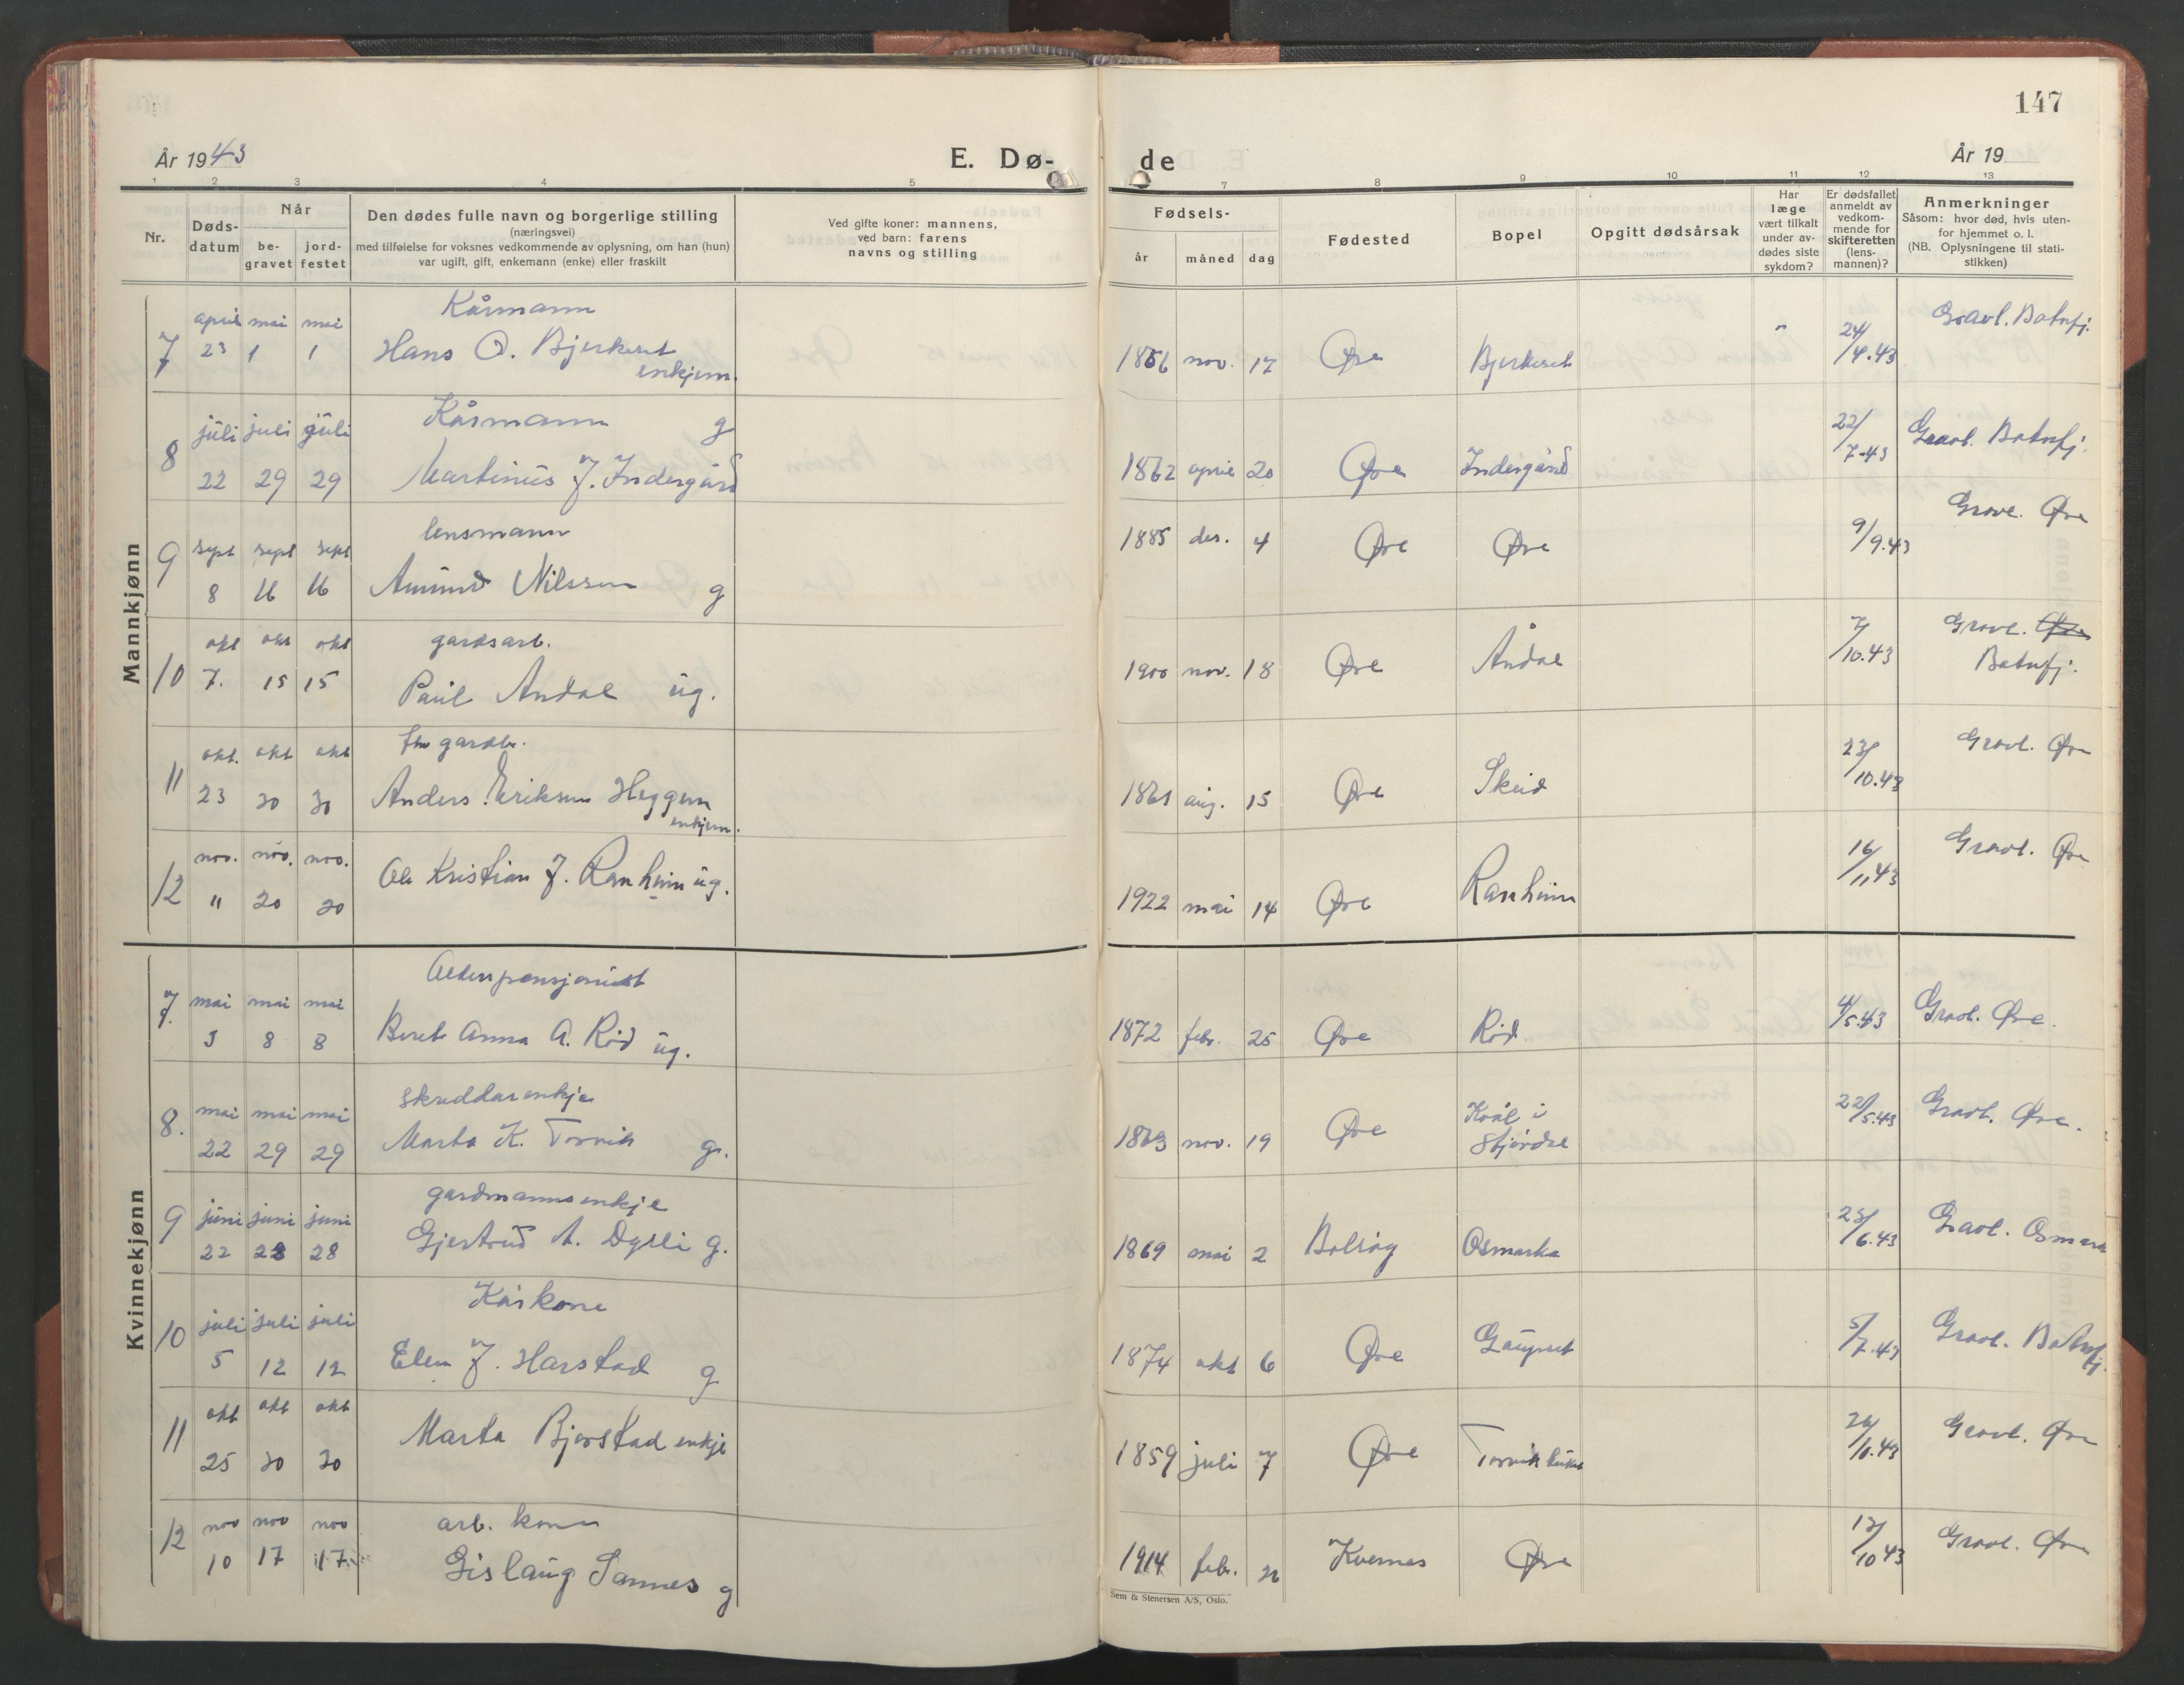 147
År 1943
E. Dø-
de
År 19
1 2 3 4 5 7 8 9 10 11 12 13
Nr.
Døds-
datum
Når
be-
gravet
jord-
festet
Den dødes fulle navn og borgerlige stilling
(næringsvei)
med tilføielse for voksnes vedkommende av oplysning, om han (hun)
var ugift, gift, enkemann (enke) eller fraskilt
Ved gifte koner: mannens,
ved barn: farens
navns og stilling
Fødsels-
år måned dag
Fødested
Bopel
Opgitt dødsårsak
Har
læge
vært tilkalt
under av-
dødes siste
sykdom?
Er dødsfallet
anmeldt av
vedkom-
mende for
skifteretten
(lens-
mannen)?
Anmerkninger
Såsom: hvor død, hvis uten-
for hjemmet o. l.
(NB. Oplysningene til stati-
stikken)
Mannkjønn
april mai mai Kårmann Gravl. Batnfj.
7 23 1 1 Hans O. Bjerkeset 1866 nov. 17 Øre Bjerkeset " 24/4.43
enkjem.
juli juli juli Kårmann g 22/7-43 Gravl. Batnfj.
8 22 29 29 Martinus J. Indergård 1862 april 20 Øre Indergård
sept sept sept lensmann 1885 des. 4 Øre Øre 9/9.43 Gravl. Øre
9 8 16 16 Amund Nilssen g
okt okt okt gardsarb. 7/10.43 Gravl. Øre
10 7. 15 15 Paul Åndal ug. 1900 nov. 18 Øre Åndal Batnfj.
okt. okt okt fhv gardbr. 23/10.43 Gravl. Øre
11 23 30 30 Anders Eriksen Heggem 1861 aug. 15 Øre Skeid
enkjem.
nov. nov. nov. 16/11 43 Gravl. Øre
12 11 20 20 Ole Kristian J. Ranheim ug. 1922 mai 14 Øre Ranheim
Kvinnekjønn
mai mai mai Alderspensjonist
7. 3 8 8 Beret Anna A. Rød ug. 1872 febr. 25 Øre Rød 4/5.43 Gravl. Øre.
mai mai mai skreddarenkje Kvål i 22/5.43 Gravl. Øre.
8. 22 29 29 Marta K. Torvik g. 1863 nov. 19 Øre Stjørdal
juni juni juni gardmannsenkje
9 22 28 28 Gjertrud A. Dyrli g. 1869 mai 2 Bolsøy Osmarka 23/6.43 Gravl. Osmark
juli juli juli Kårkone
10 5 12 12 Elen J. Harstad g 1874 okt 6 Øre Gaupset 5/7.43 Gravl. Batnfj.
okt okt okt
11 25 30 30 Marta Bjerstad enkje 1859 juli 7 Øre 26/10.43 Gravl. Øre
nov nov nov arb. kone
12 10 17 17 Gislaug Sannes g 1914 feb. Kvernes Øre 12/10 43 Gravl. Øre
Sem & Stenersen A/S, Oslo.